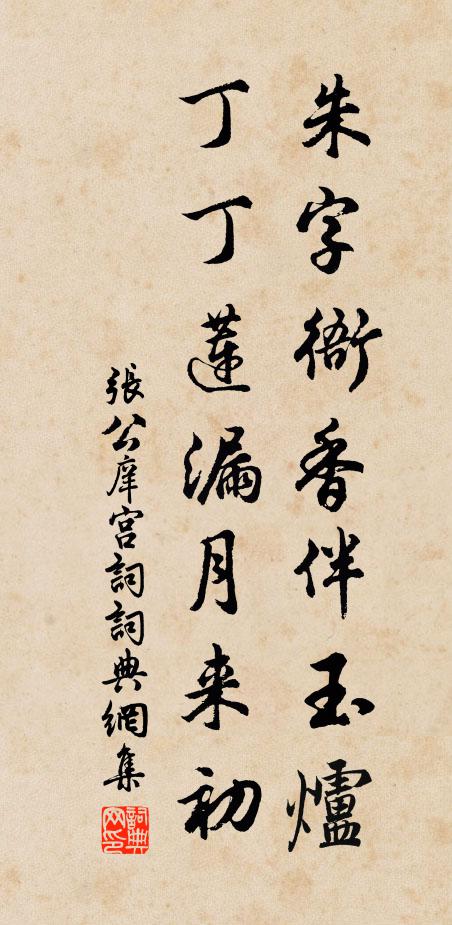 朱字衙香伴玉爐
丁丁蓮漏月来初
張公庠宮詞詞典網集
詞典網印